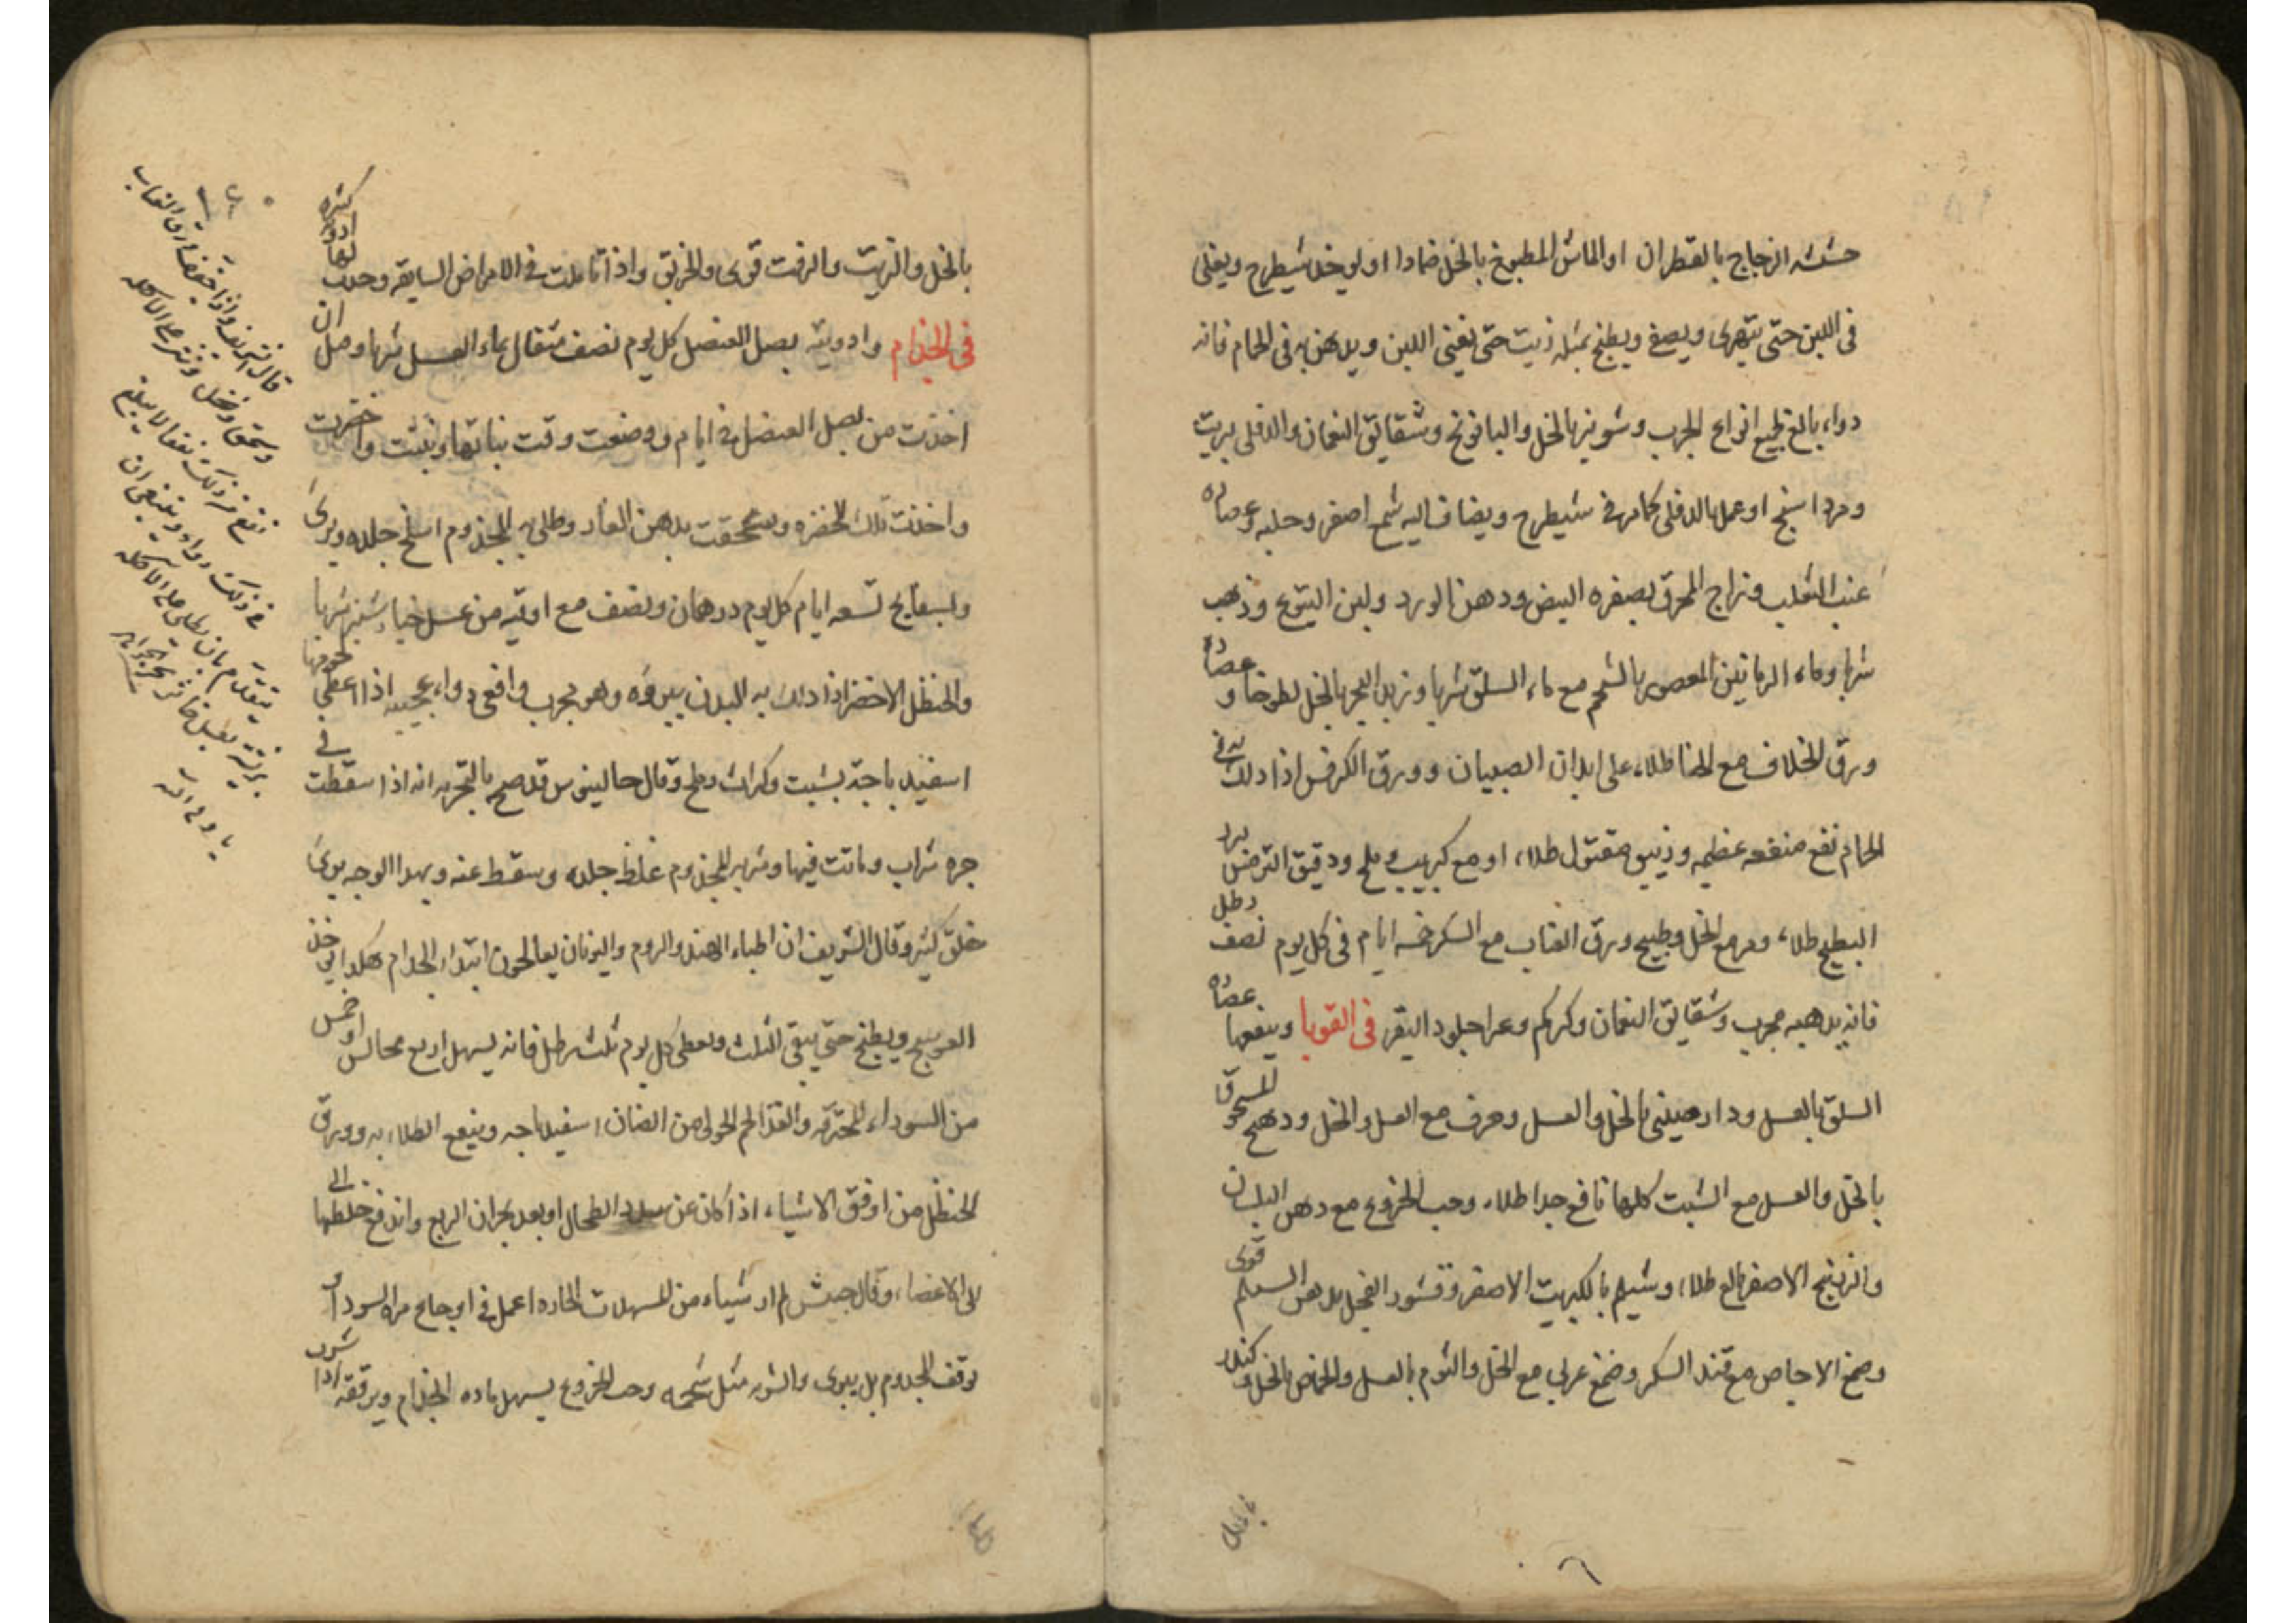 حشيشه الزجاج بالقطران او الماش المطبوخ بالخل ضمادا او يوخذ شيطرج ويغلى
فى اللبن حتى يتهرى ويصفى ويطبخ بمثله زيت حتى يفنى اللبن ويدهن به فى الحمام فانه
دواء بالغ لجميع انواع الجرب وشونيز بالخل والبابونج وشقايق النعمان والدفلى بزيت
ومرداسنج او عمل بالدفلى كما مر فى شيطرج ويضاف اليه شمع اصفر وحلبه وعصاره
عنب الثعلب وزاج المحرق بصفره البيض ودهن الورد ولبن اليتوع وذهب
شربا وماء الرمانين المعصور بالشحم مع ماء السلق شربا وزبد البحر بالخل لطوخا وعصاره
ورق الخلاف مع الحنا طلاء على ابدان الصبيان وورق الكرفس اذا دلك به فى
الحمام نفع منفعه عظيمه وزيبق مقتول طلاء او مع كبريت وملح ودقيق الترمس بزر
البطيخ طلاء ومر مع الخل وطبيخ ورق العناب مع السكر خمسه ايام فى كل يوم نصف رطل
فانه يذهبه مجرب وشقايق النعمان وكركم وغرا جلود البقر فى القوبا وينفعها عصاره
السلق بالعسل ودارصينى بالخل والعسل وحرف مع العسل والخل ودهنج المسحوق
بالخل والعسل مع الشبت كلها نافع جدا طلاء وحب الخروع مع دهن البلسان
والزرنيخ الاصفر بالغ طلاء وشيلم بالكبريت الاصفر وقشور الفجل بدهن السمسم قوى
وصمغ الاجاص مع قند السكر وصمغ عربى مع الخل والثوم بالعسل والحماض بالخل وكندر
بالخل والزيت والزفت قوى والخربق واذا تاملت فى الامراض السابقه وجدت لها ادويه كثيره
فى الجذام وادويته بصل العنصل كل يوم نصف مثقال بماء العسل شربا وصل ان
اخذت من بصل العنصل فى ايام ووضعت وقت نباتها ونبتت واخضرت
واخذت تلك الخضره وسحقت بدهن الغار وطلى به المجذوم انسلخ جلده وبرى
وبسفايج تسعه ايام كل يوم درهمان ونصف مع اوقيه من عسل خيارشنبر شربا
والحنظل الاخضر اذا دلك به البدن يبروه وهو مجرب وافعى دواء عجيب اذا اعطى لحومها
اسفيدباجه بشبت وكراث وملح وقال جالينوس قد صح بالتجربه انه اذا سقطت فى
جره شراب وماتت فيها وشربه المجذوم غلظ جلده وسقط عنه وبهذا الوجه برى
خلق كثير وقال الشريف ان اطباء الهند والروم واليونان يعالجون ابتداء الجذام هكذا يوخذ
العوسج ويطبخ حتى يبقى الثلث ويعطى كل يوم ثلث رطل فانه يسهل اربع مجالس او خمس
من السوداء المحترقه والغذا لحم الحولى من الضان اسفيدباجه وينفع الطلاء به وورق
الحنظل من اوفق الاشياء اذا كان عن الطحال او بعد بحران الربع واندفع خلطها الى
الاعضاء وقال حبيش لم ار شياء من المسهلات الحاره اعمل فى اوجاع مره السوداء و
توقف الجذوم بل يبرى والشربه مثل شحمه وحب الخروع يسهل ماده الجذام ويرققه اذا شرب
قال الشريف واذا جفف ورق العناب
وسحق ونخل ونثر على الاكله
نفع من ذلك نفعا لا يبلغه
فى ذلك دواء وينبغى ان
يتقدم بان يطلى على الاكله
بريشه بعسل خاثر مجرب